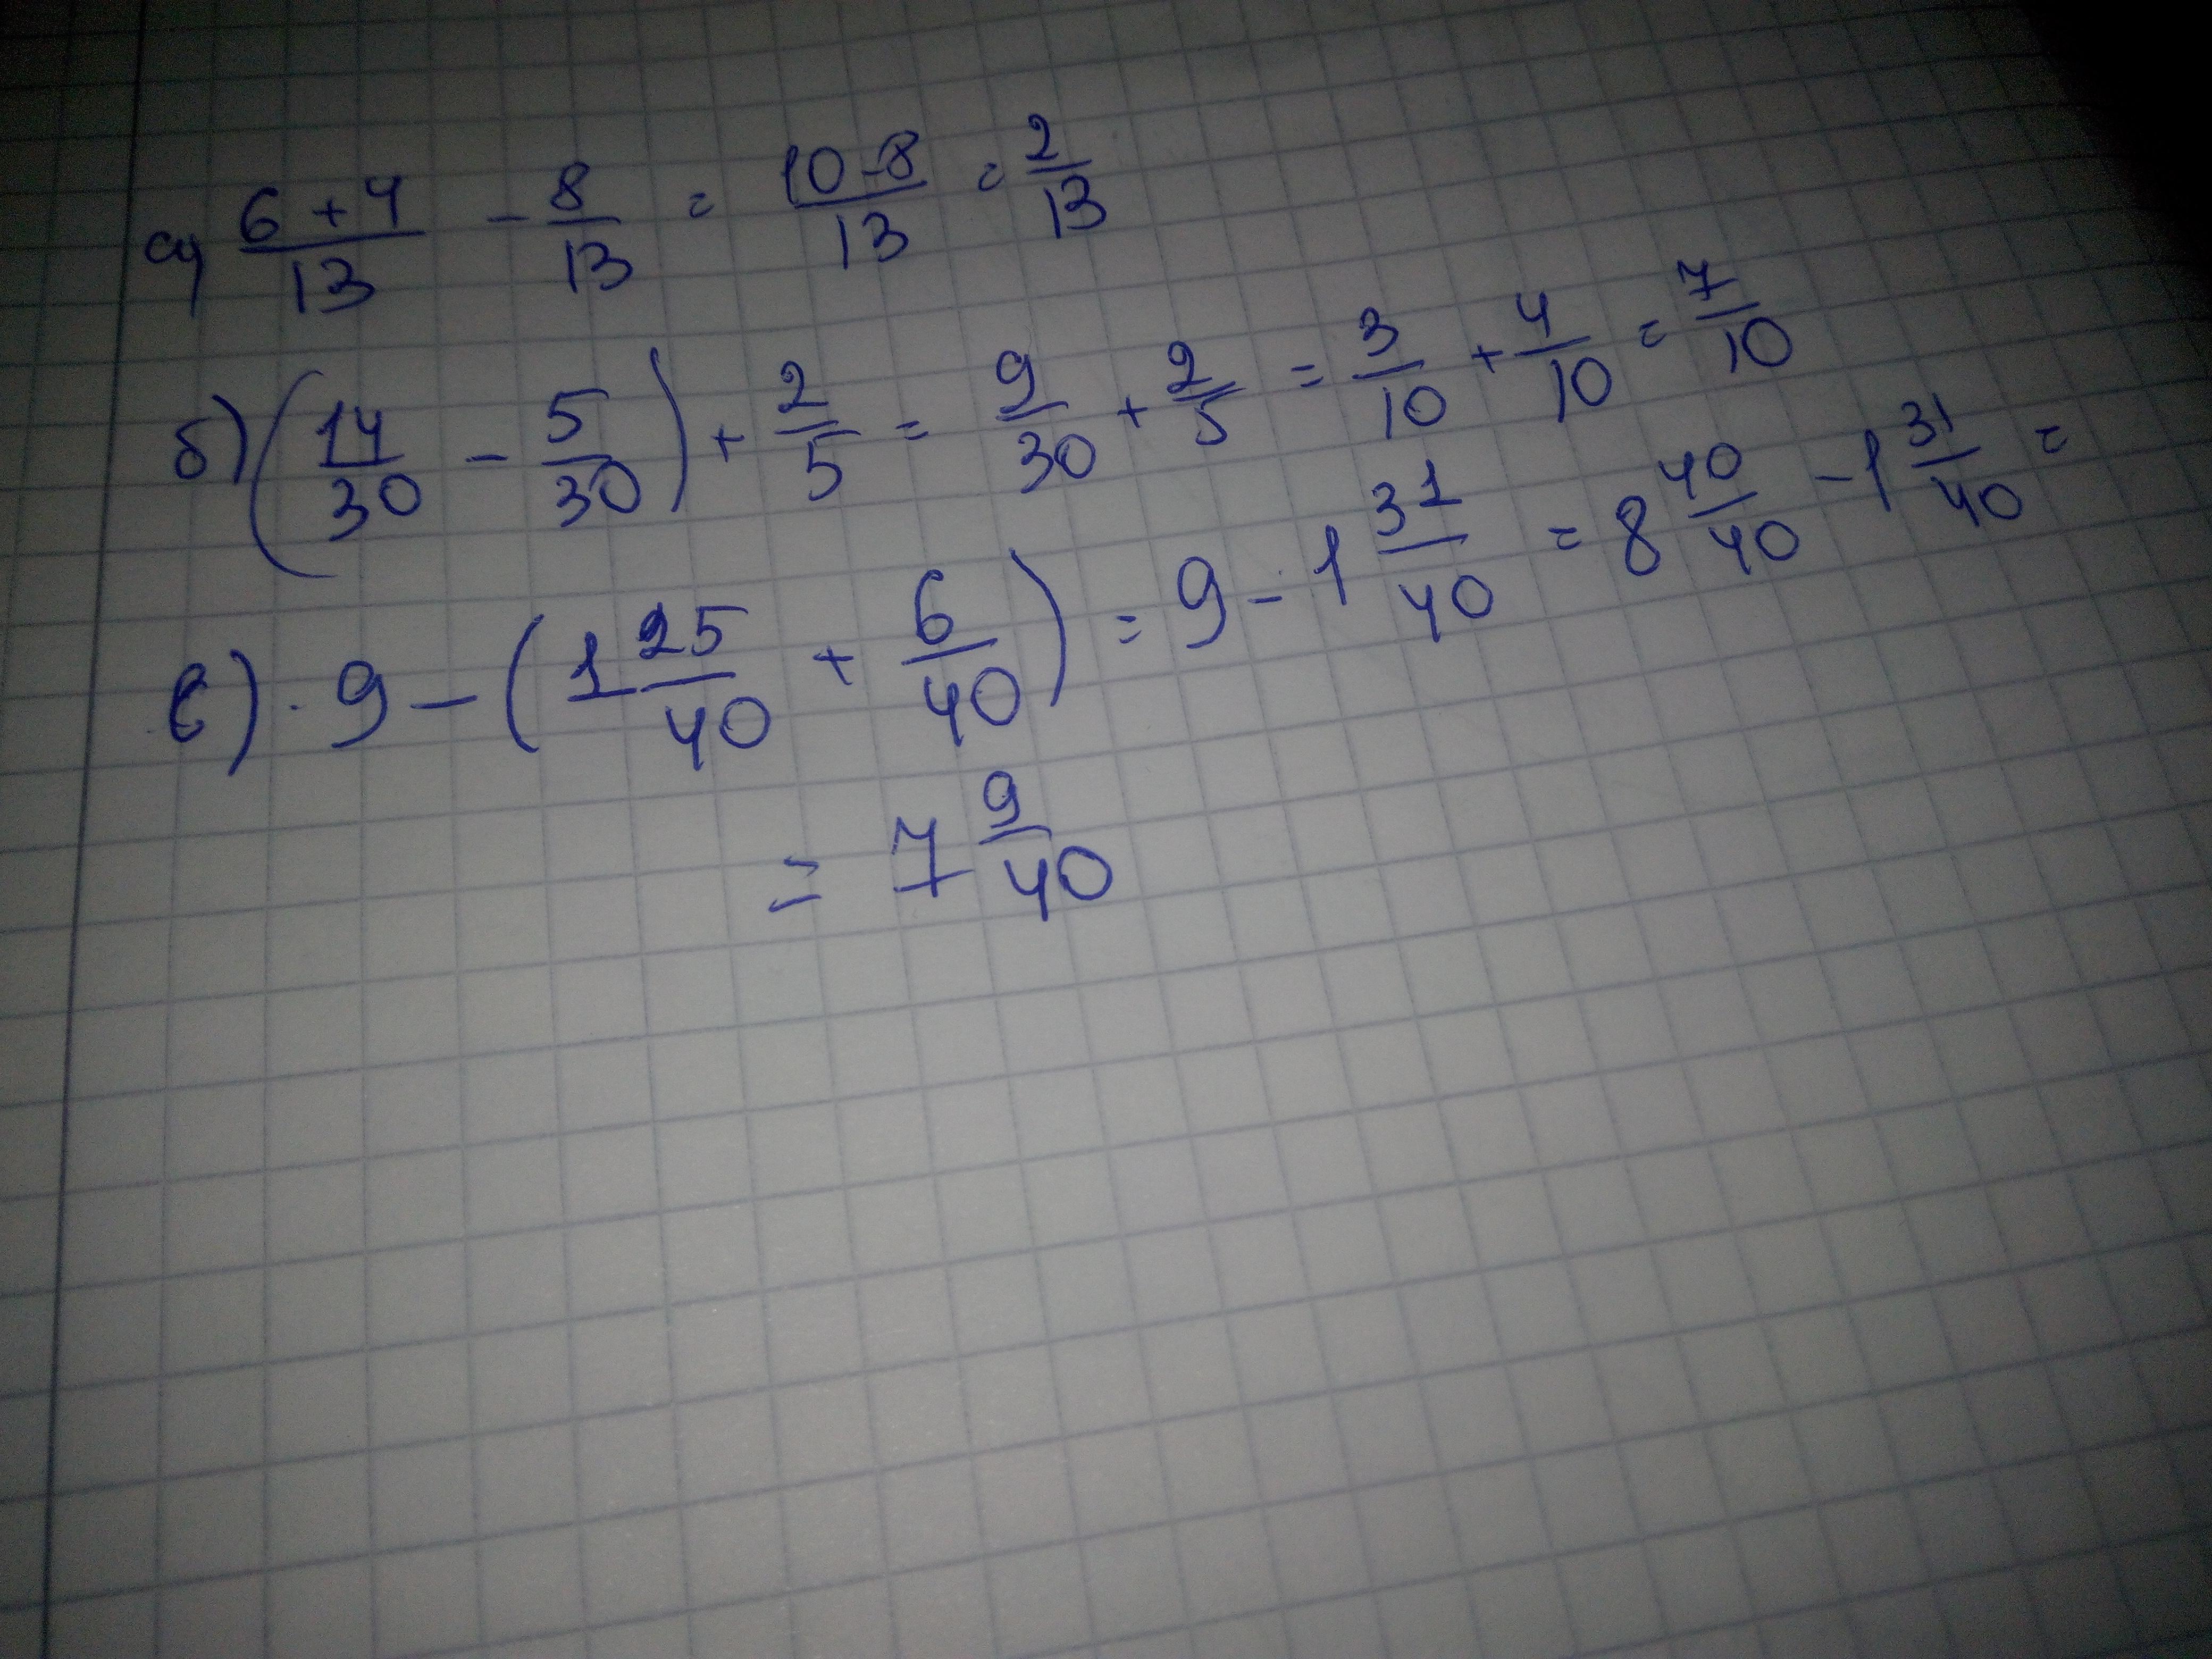 а) (6+4)/13 - 8/13 = (10-8)/13 = 2/13
б) (14/30 - 5/30) + 2/5 = 9/30 + 2/5 = 3/10 + 4/10 = 7/10
в) 9 - (1 25/40 + 6/40) = 9 - 1 31/40 = 8 40/40 - 1 31/40 =
= 7 9/40